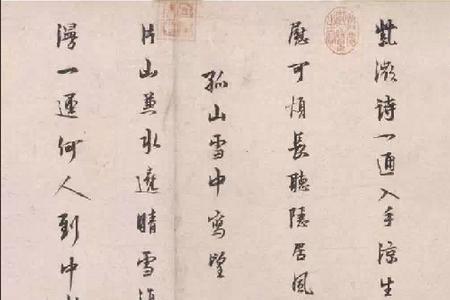 紫微詩一通入手涼生
慰可煩長聽隱居風
孤山雪中寫望
片山兼水遶晴雪
漫一逕何人到中